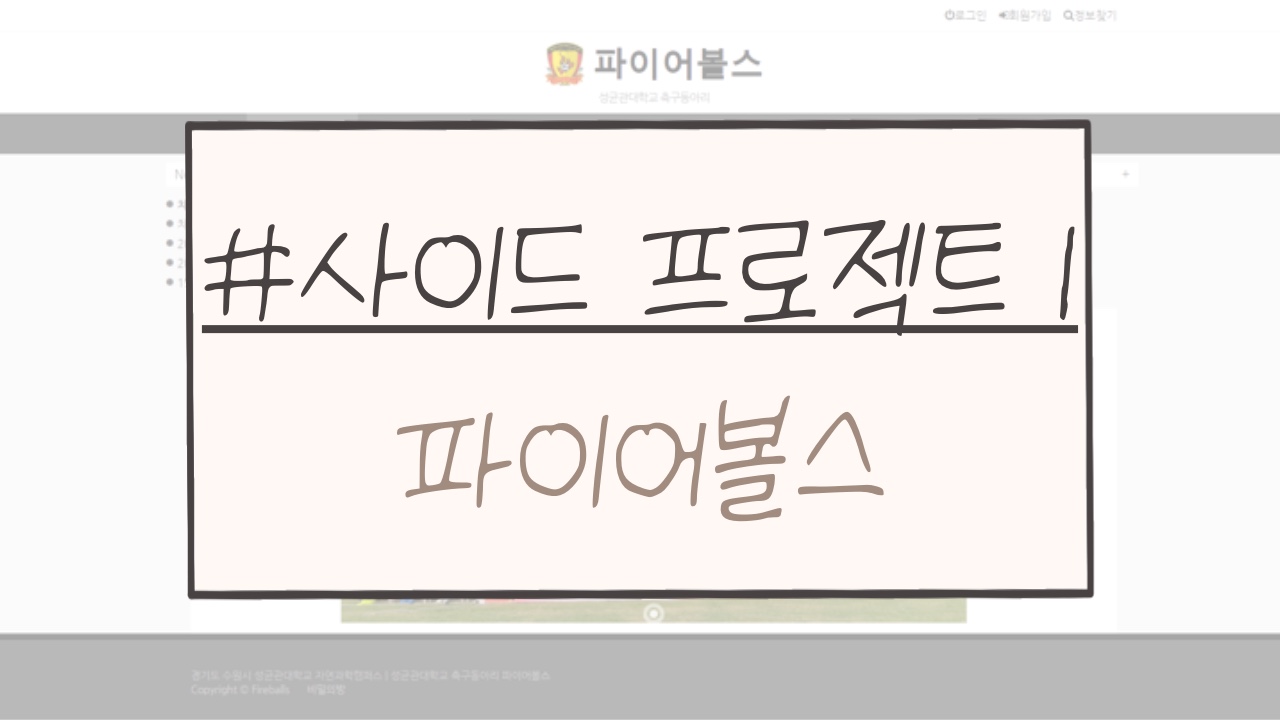 로그인 회원가입 정보찾기
파이어볼스
성균관대학교 축구동아리
#사이드 프로젝트 1
파이어볼스
경기도 수원시 성균관대학교 자연과학캠퍼스 | 성균관대학교 축구동아리 파이어볼스
Copyright © Fireballs 비밀의방